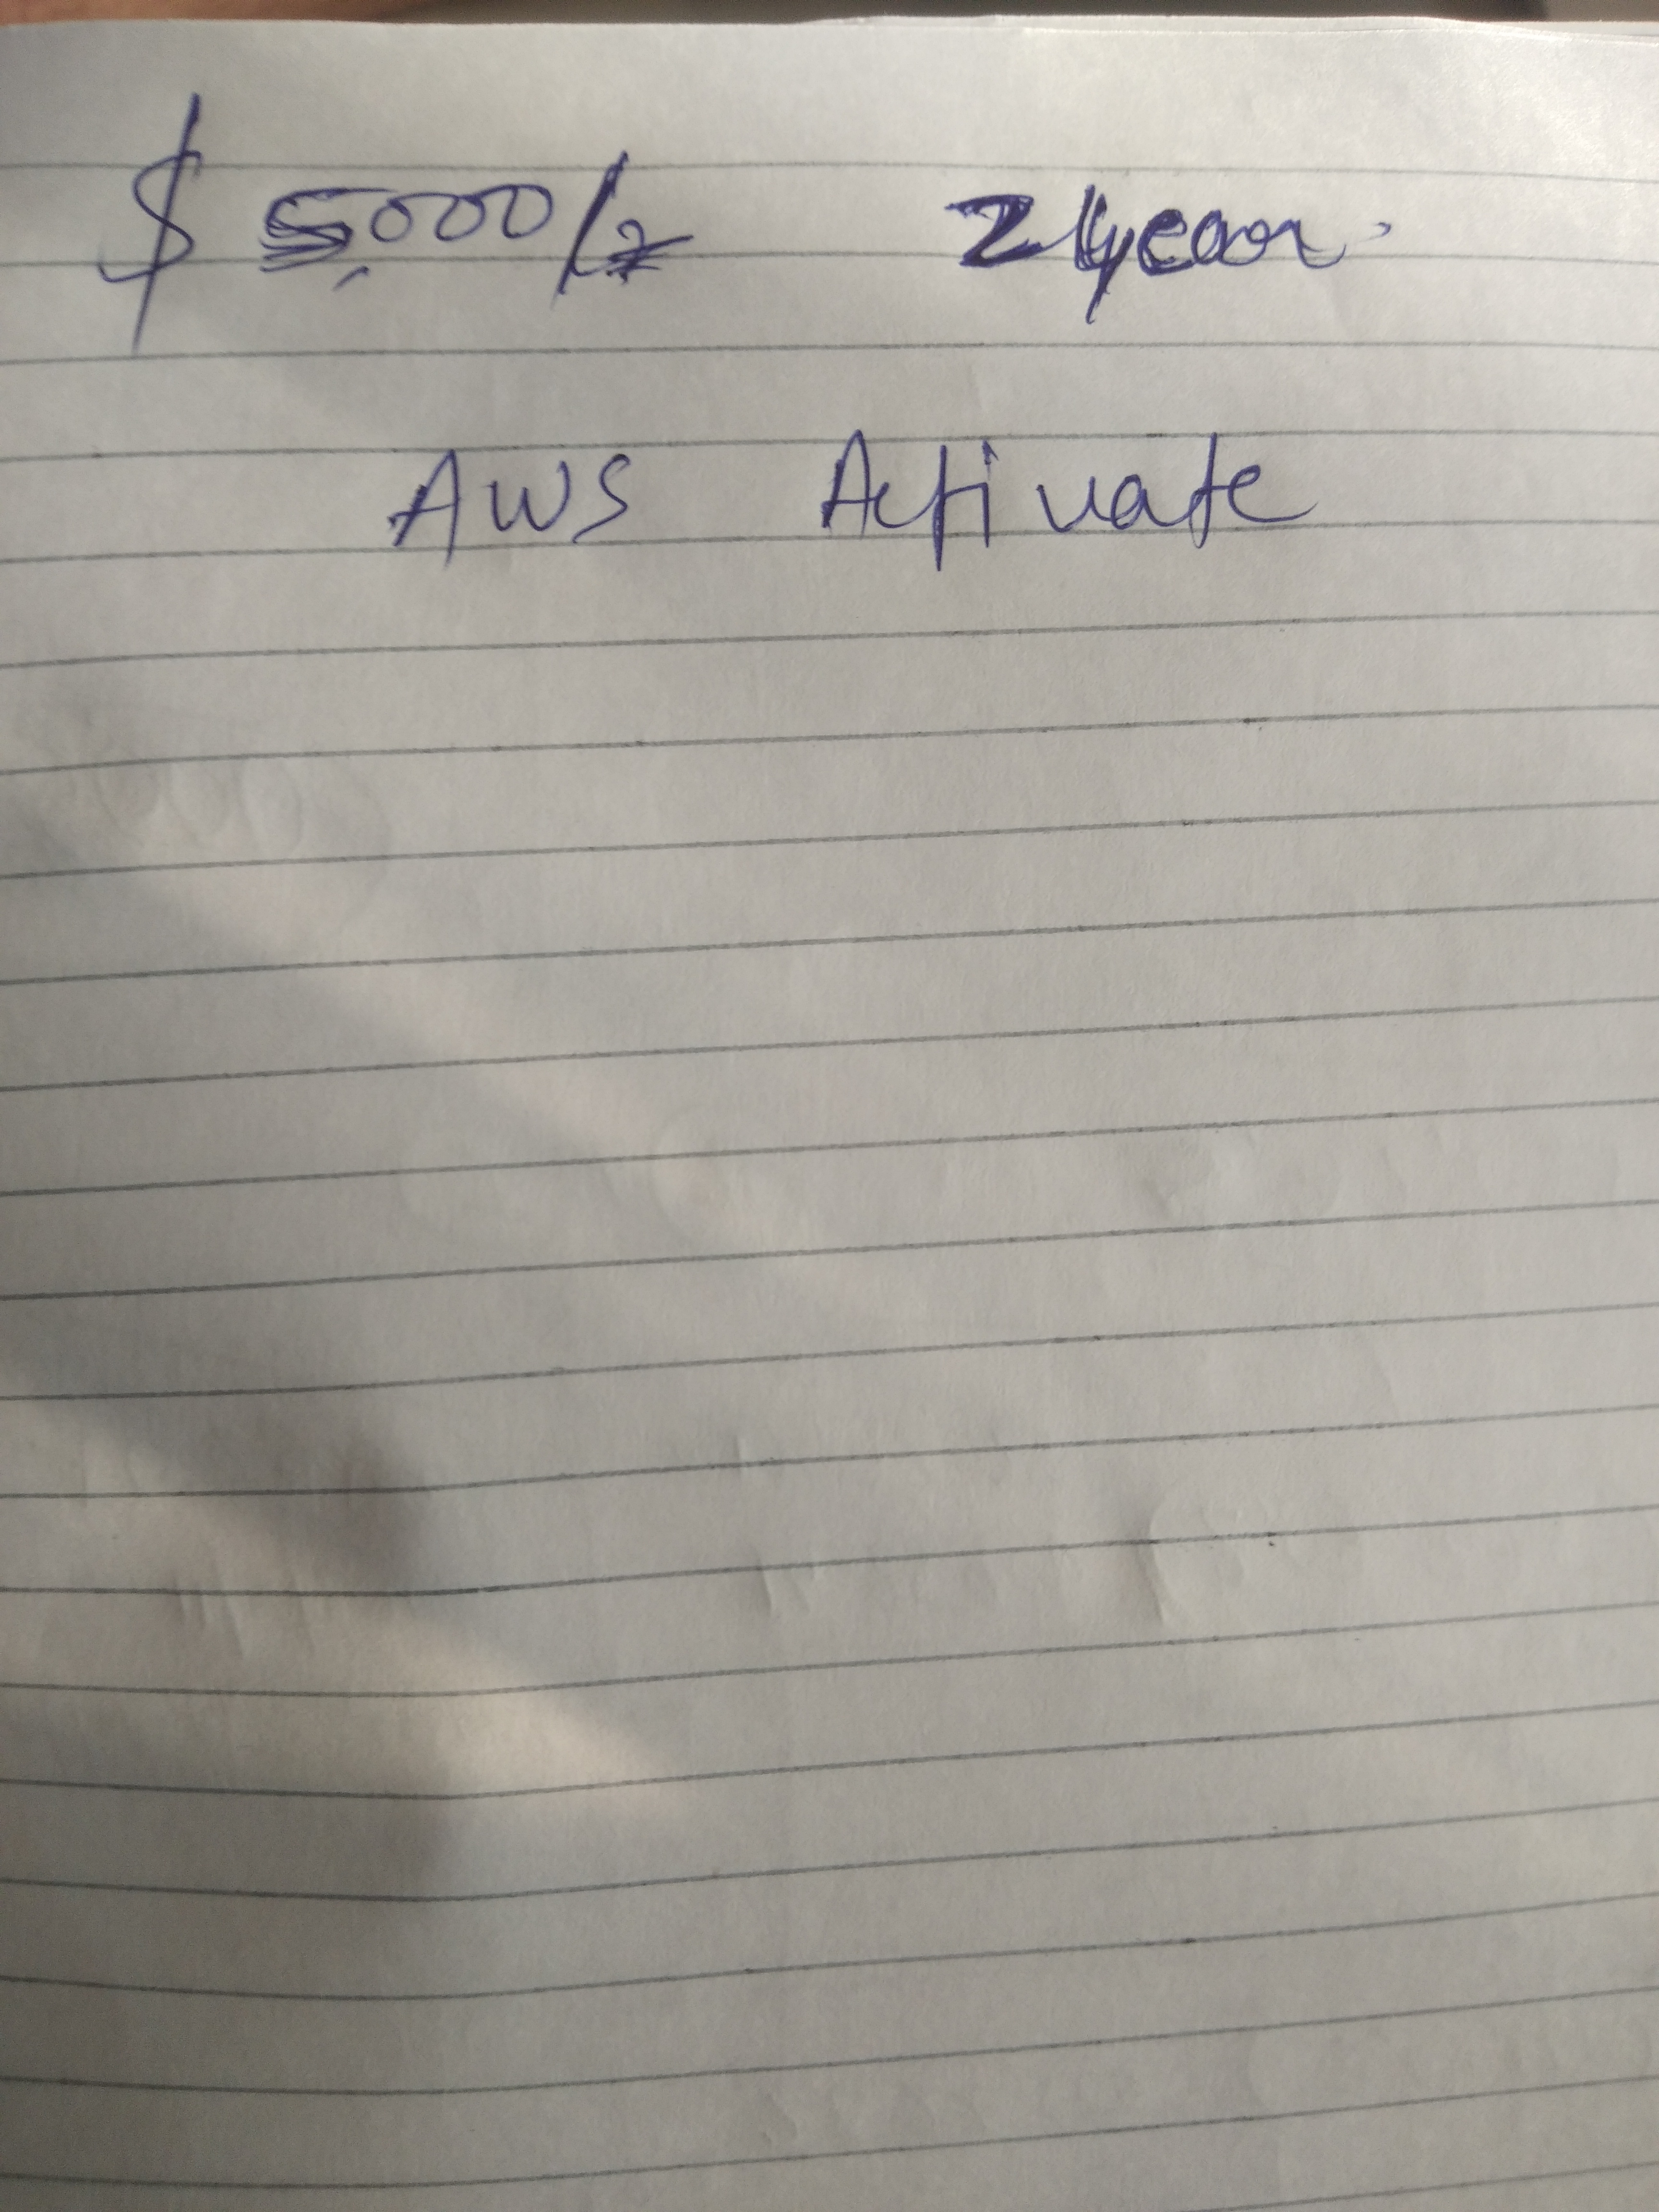 $ 5,000/- 2 year.
AWS Activate